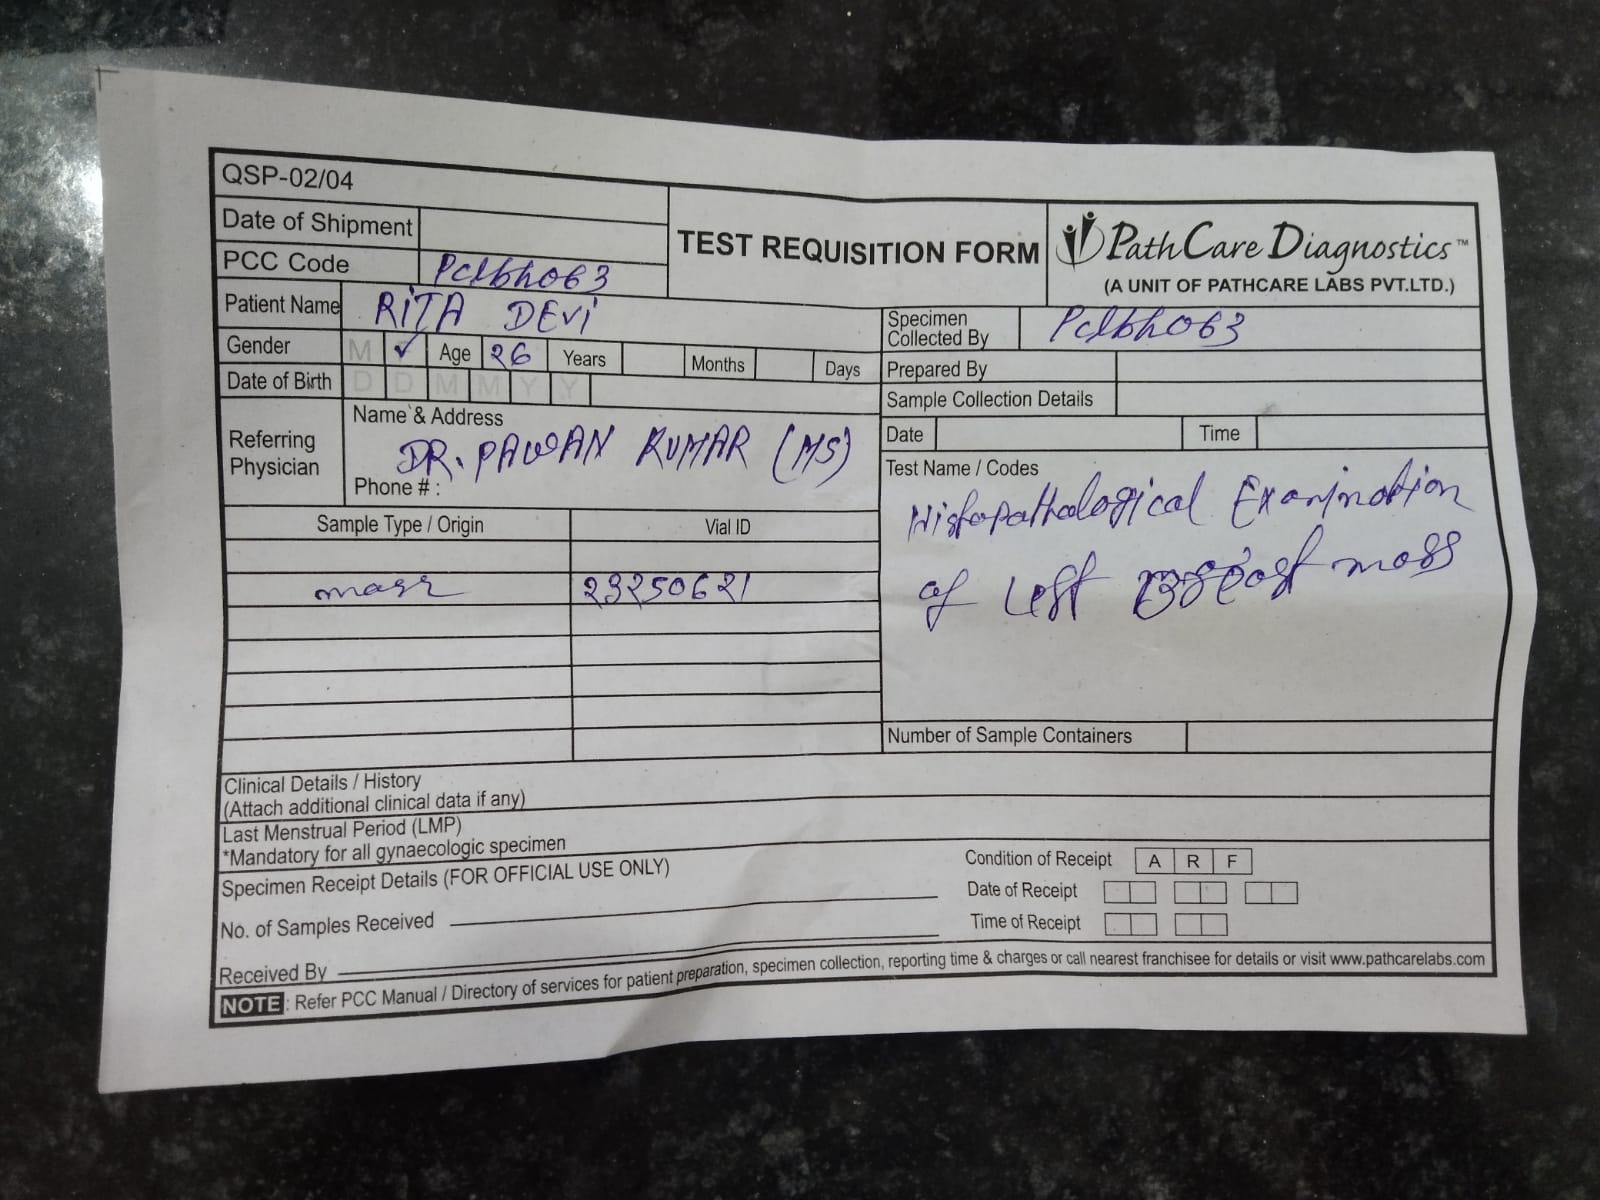 QSP-02/04
Date of Shipment
PCC Code Pclbh063
TEST REQUISITION FORM
PathCare Diagnostics™
(A UNIT OF PATHCARE LABS PVT.LTD.)
Patient Name RITA DEVI
Gender M F ✓ Age 26 Years Months Days
Date of Birth D D M M Y Y
Referring Physician
Name & Address
DR. PAWAN KUMAR (MS)
Phone # :
Specimen Collected By Pclbh063
Prepared By
Sample Collection Details
Date Time
Test Name / Codes
Histopathological Examination
of Left Breast mass
Sample Type / Origin Vial ID
mass 23250621
Number of Sample Containers
Clinical Details / History
(Attach additional clinical data if any)
Last Menstrual Period (LMP)
*Mandatory for all gynaecologic specimen
Specimen Receipt Details (FOR OFFICIAL USE ONLY)
Condition of Receipt A R F
Date of Receipt
No. of Samples Received
Time of Receipt
Received By
NOTE : Refer PCC Manual / Directory of services for patient preparation, specimen collection, reporting time & charges or call nearest franchisee for details or visit www.pathcarelabs.com